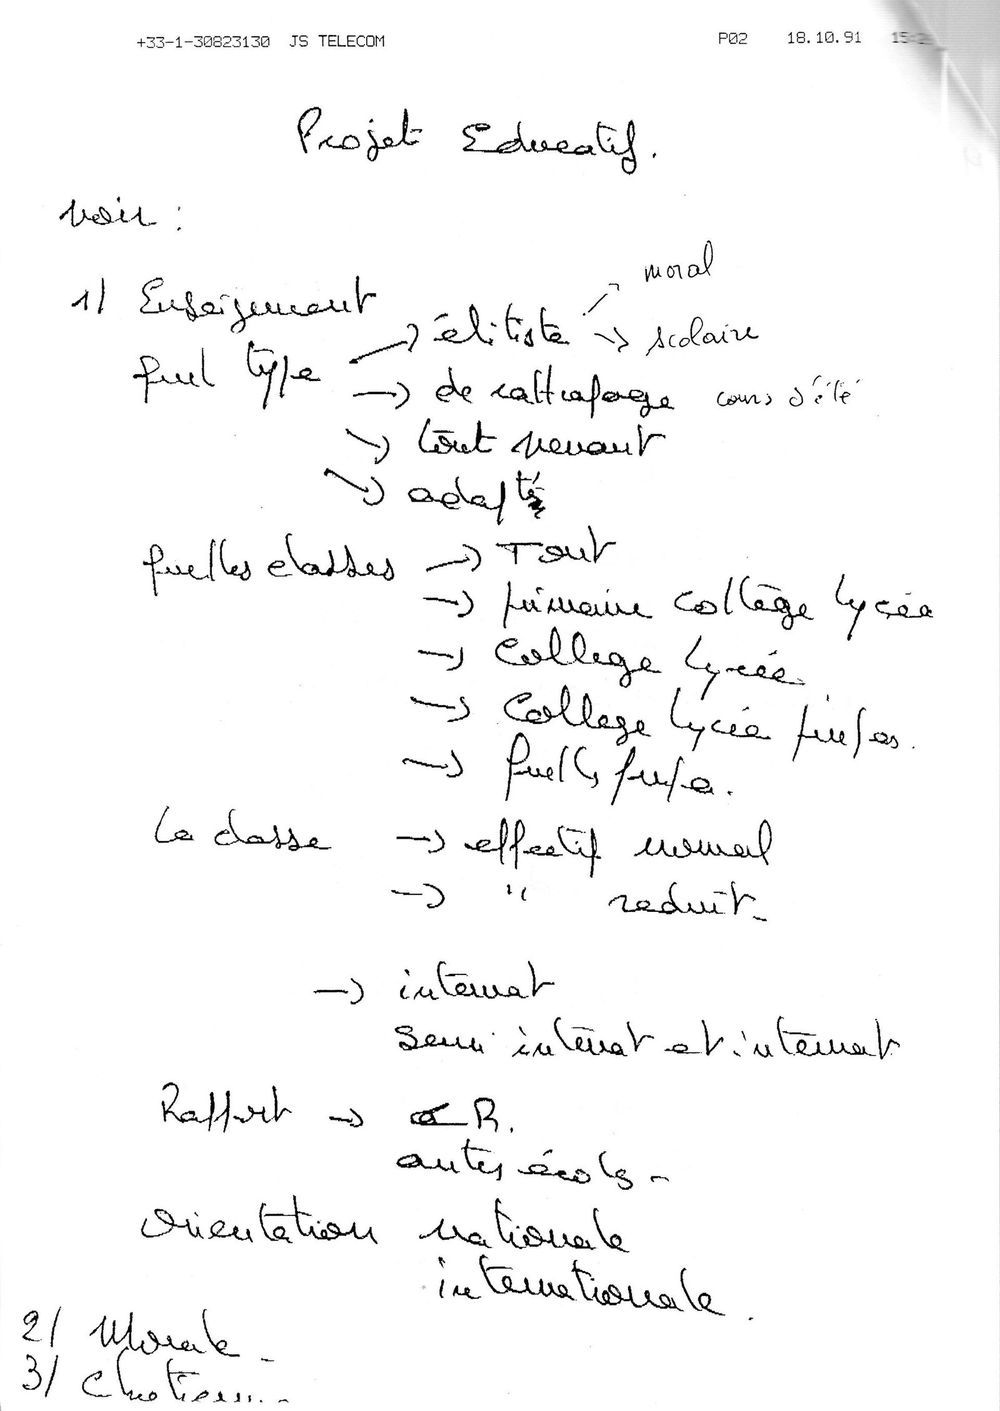 +33-1-30823130 JS TELECOM P02 18.10.91
Projet Educatif.
voir :
1/ Enseignement
quel type → élitiste → moral
→ scolaire
→ de rattrapage cours d'été
→ tout venant
→ adapté
quelles classes → Tout
→ primaire collège lycée
→ College lycée.
→ College lycée prepas.
→ quelles prepa.
La classe → effectif normal
→ " reduit -
→ internat
semi internat et internat
Rapport → R.
autres écoles -
Orientation nationale
internationale.
2/ Morale -
3/